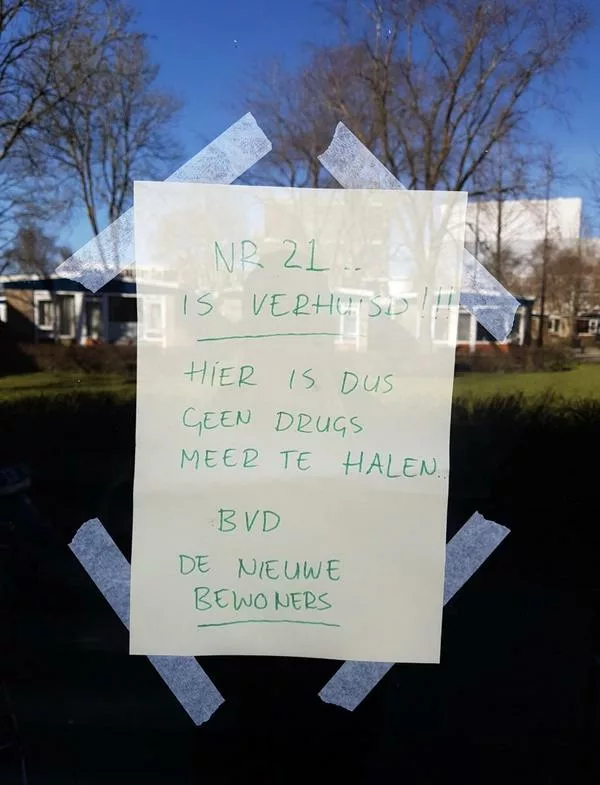 NR 21..
IS VERHUISD!!!
HIER IS DUS
GEEN DRUGS
MEER TE HALEN..
BVD
DE NIEUWE
BEWONERS